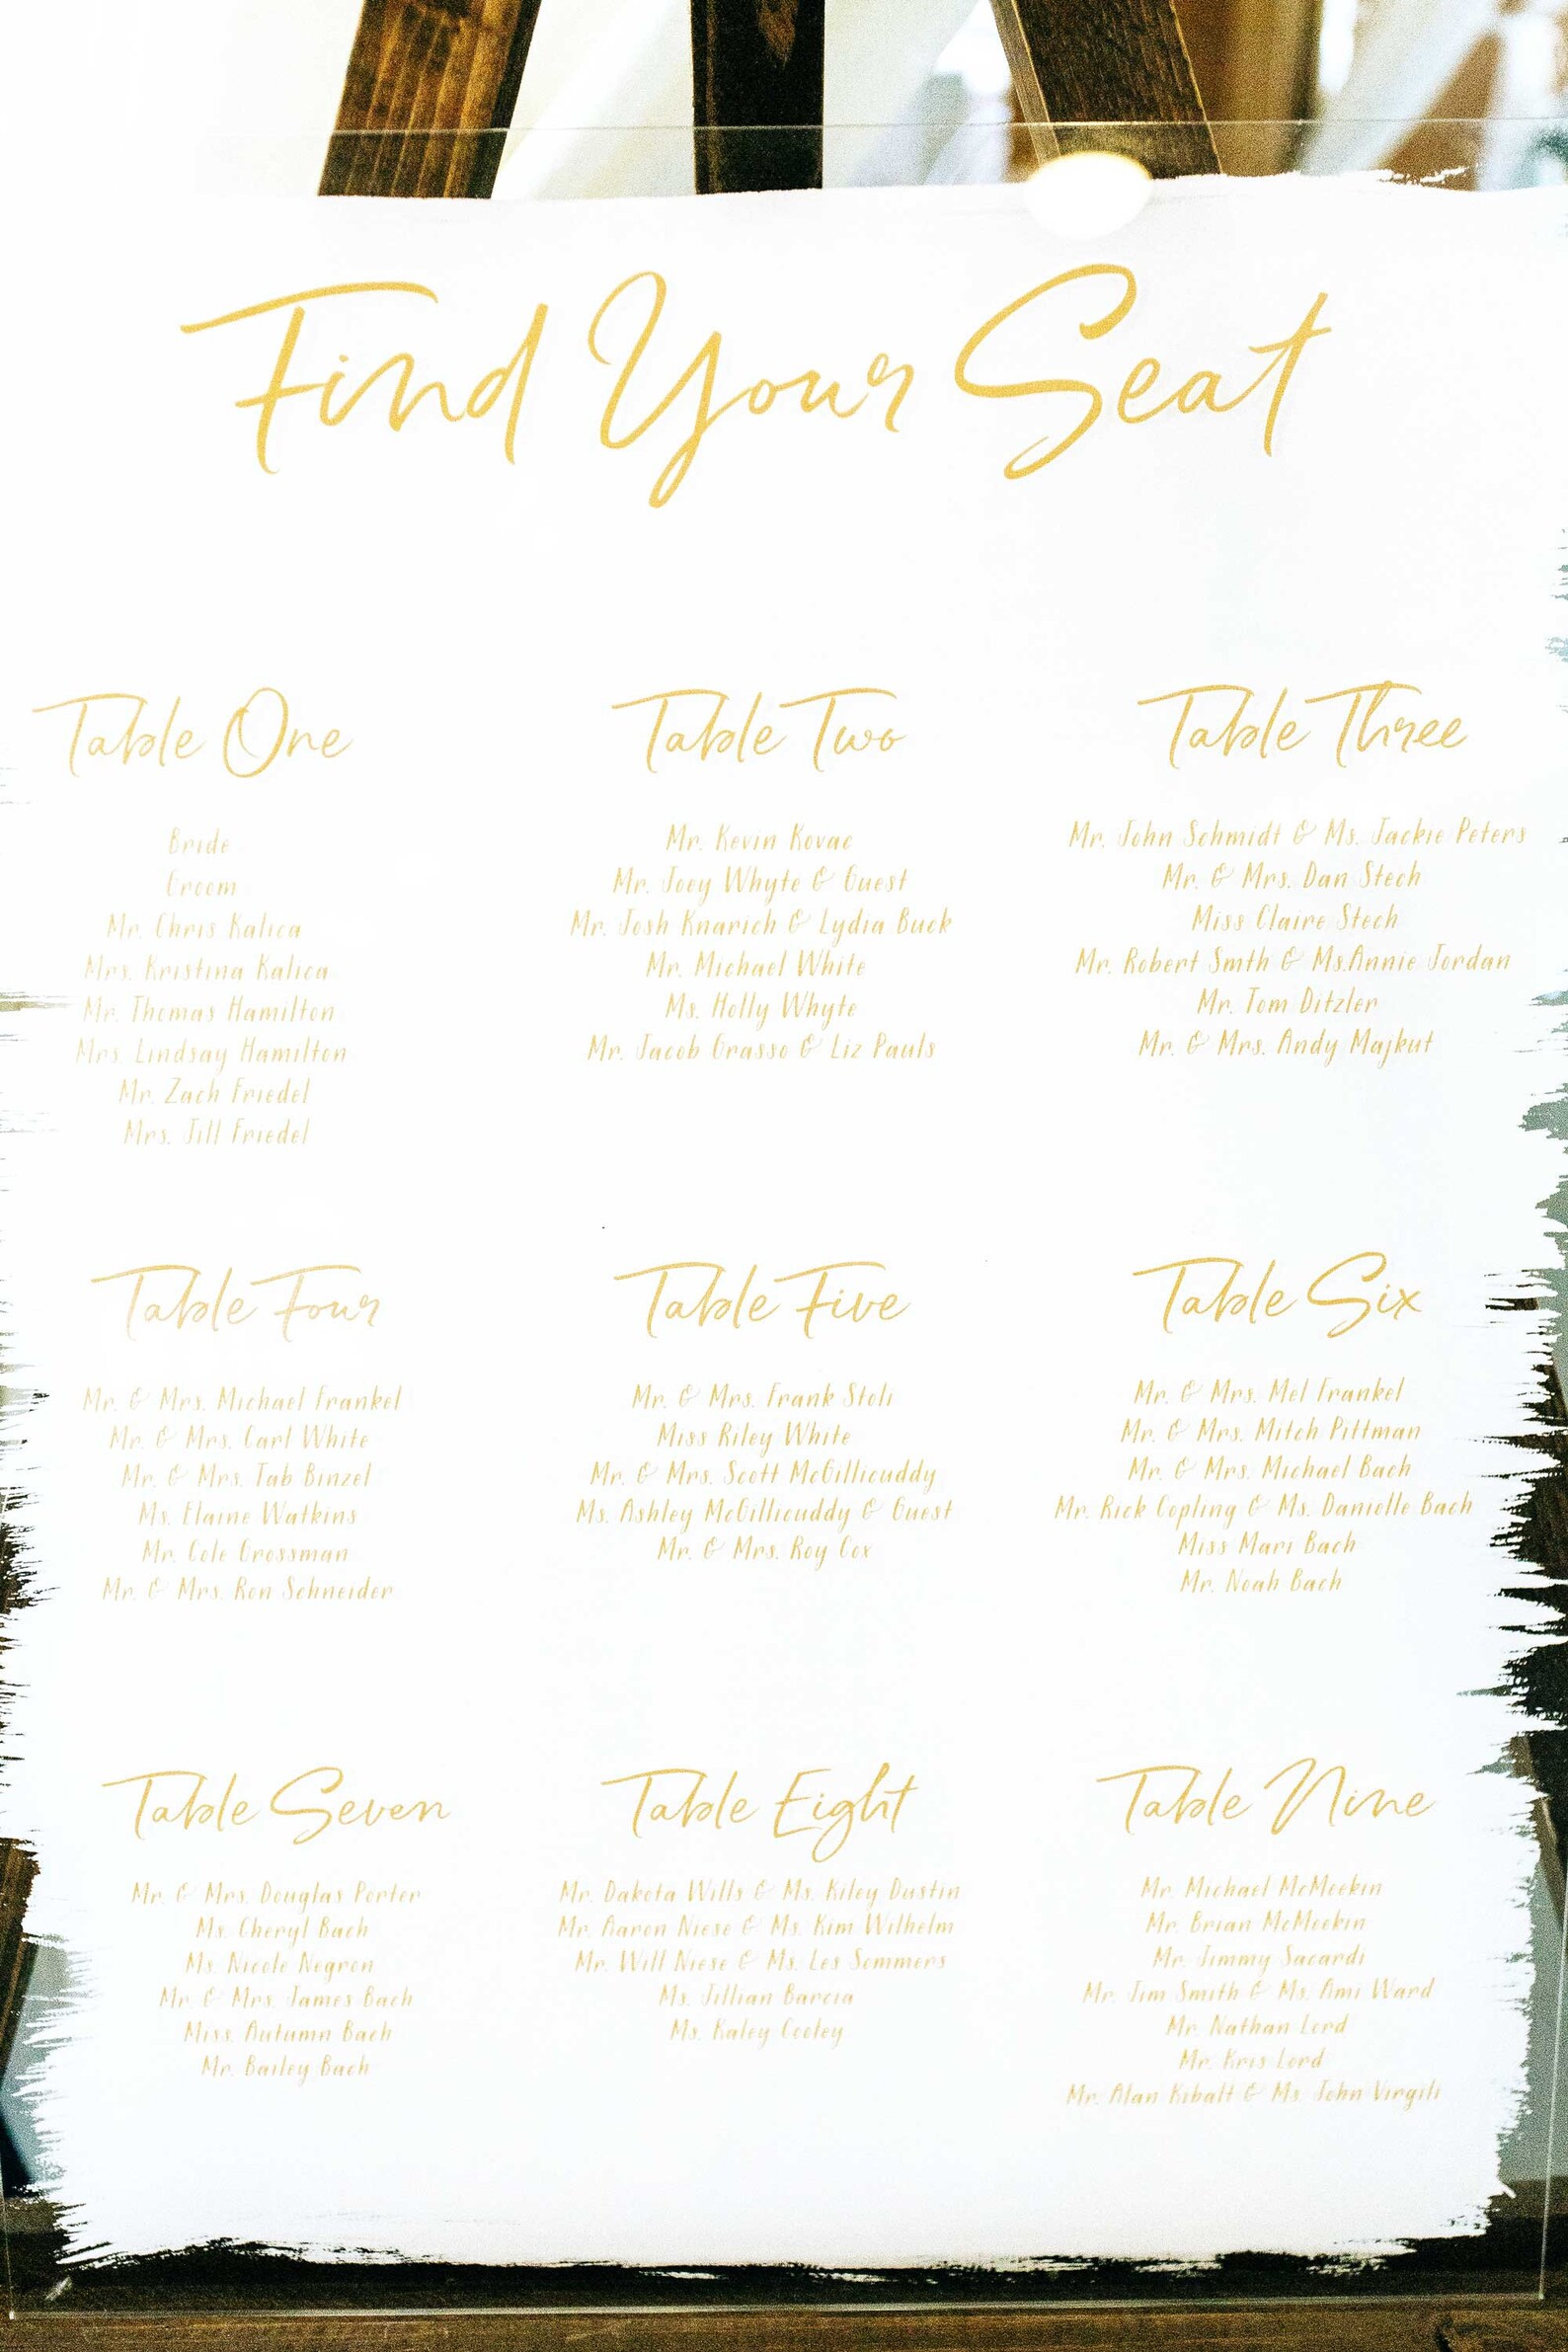 Find Your Seat
Table One
Bride
Groom
Mr. Chris Kalica
Mrs. Kristina Kalica
Mr. Thomas Hamilton
Mrs. Lindsay Hamilton
Mr. Zach Friedel
Mrs. Jill Friedel
Table Two
Mr. Kevin Kovac
Mr. Joey Whyte & Guest
Mr. Josh Knarich & Lydia Buck
Mr. Michael White
Ms. Holly Whyte
Mr. Jacob Grasso & Liz Pauls
Table Three
Mr. John Schmidt & Ms. Jackie Peters
Mr. & Mrs. Dan Stech
Miss Claire Stech
Mr. Robert Smth & Ms.Annie Jordan
Mr. Tom Ditzler
Mr. & Mrs. Andy Majkut
Table Four
Mr. & Mrs. Michael Frankel
Mr. & Mrs. Carl White
Mr. & Mrs. Tab Binzel
Ms. Elaine Watkins
Mr. Cole Grossman
Mr. & Mrs. Ron Schneider
Table Five
Mr. & Mrs. Frank Stoli
Miss Riley White
Mr. & Mrs. Scott McGillicuddy
Ms. Ashley McGillicuddy & Guest
Mr. & Mrs. Roy Cox
Table Six
Mr. & Mrs. Mel Frankel
Mr. & Mrs. Mitch Pittman
Mr. & Mrs. Michael Bach
Mr. Rick Copling & Ms. Danielle Bach
Miss Mari Bach
Mr. Noah Bach
Table Seven
Mr. & Mrs. Douglas Porter
Ms. Cheryl Bach
Ms. Nicole Negron
Mr. & Mrs. James Bach
Miss. Autumn Bach
Mr. Bailey Bach
Table Eight
Mr. Dakota Wills & Ms. Kiley Dustin
Mr. Aaron Niese & Ms. Kim Wilhelm
Mr. Will Niese & Ms. Les Sommers
Ms. Jillian Barcia
Ms. Kaley Cooley
Table Nine
Mr. Michael McMeekin
Mr. Brian McMeekin
Mr. Jimmy Sacardi
Mr. Jim Smith & Ms. Ami Ward
Mr. Nathan Lord
Mr. Kris Lord
Mr. Alan Kibalt & Ms. John Virgili